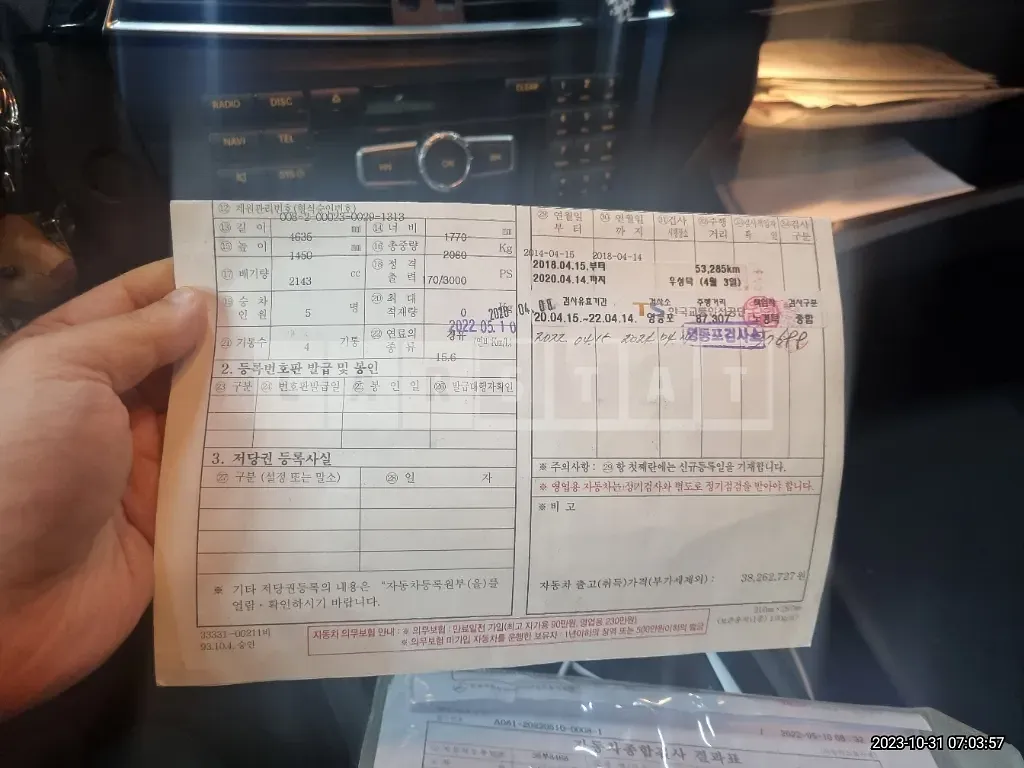 RADIO DISC
CLEAR
NAVI TEL
ON
⑫ 제원관리번호(형식승인번호)
008-2-00023-0029-1313
⑬ 길 이 4635 mm ⑭ 너 비 1770 mm
⑮ 높 이 1450 mm ⑯ 총중량 2060 Kg
⑰ 배기량 2143 cc ⑱ 정 격 출 력 170/3000 PS
⑲ 승 차 인 원 5 명 ⑳ 최 대 적재량 0 Kg
㉑ 기통수 4 기통 ㉒ 연료의 종 류 경유
15.6
2022.05.10
2. 등록번호판 발급 및 봉인
㉓ 구분 ㉔ 번호판발급일 ㉕ 봉 인 일 ㉖ 발급대행자확인
3. 저당권 등록사실
㉗ 구분 (설정 또는 말소) ㉘ 일 자
※ 기타 저당권등록의 내용은 "자동차등록원부(을)를
열람·확인하시기 바랍니다.
33331-00211비
93.10.4. 승인
㉙ 연월일 부 터 ㉚ 연월일 까 지 ㉛ 검사 ㉜ 주행 거리 ㉞ 검사 구분
2014-04-15 2018-04-14
2018.04.15.부터 53,285km
2020.04.14.까지 우성덕 (4월 3일)
검사유효기간 검사소 주행거리 책임자 검사구분
TS 한국교통안전공단
20.04.15.~22.04.14. 영등포 87,307 종합
2022 04.15 영등포검사소
CARSTAT
※ 주의사항 : ㉙ 항 첫째란에는 신규등록일을 기재합니다.
※ 영업용 자동차는 정기검사와 별도로 정기점검을 받아야 합니다.
※ 비 고
자동차 출고(취득)가격(부가세제외) : 38,262,727원
자동차 의무보험 안내 : ※ 의무보험 : 만료일전 가입(최고 자가용 90만원, 영업용 230만원)
※ 의무보험 미가입 자동차를 운행한 보유자 : 1년이하의 징역 또는 500만원이하의 벌금
자동차종합검사 결과표
2023-10-31 07:03:57